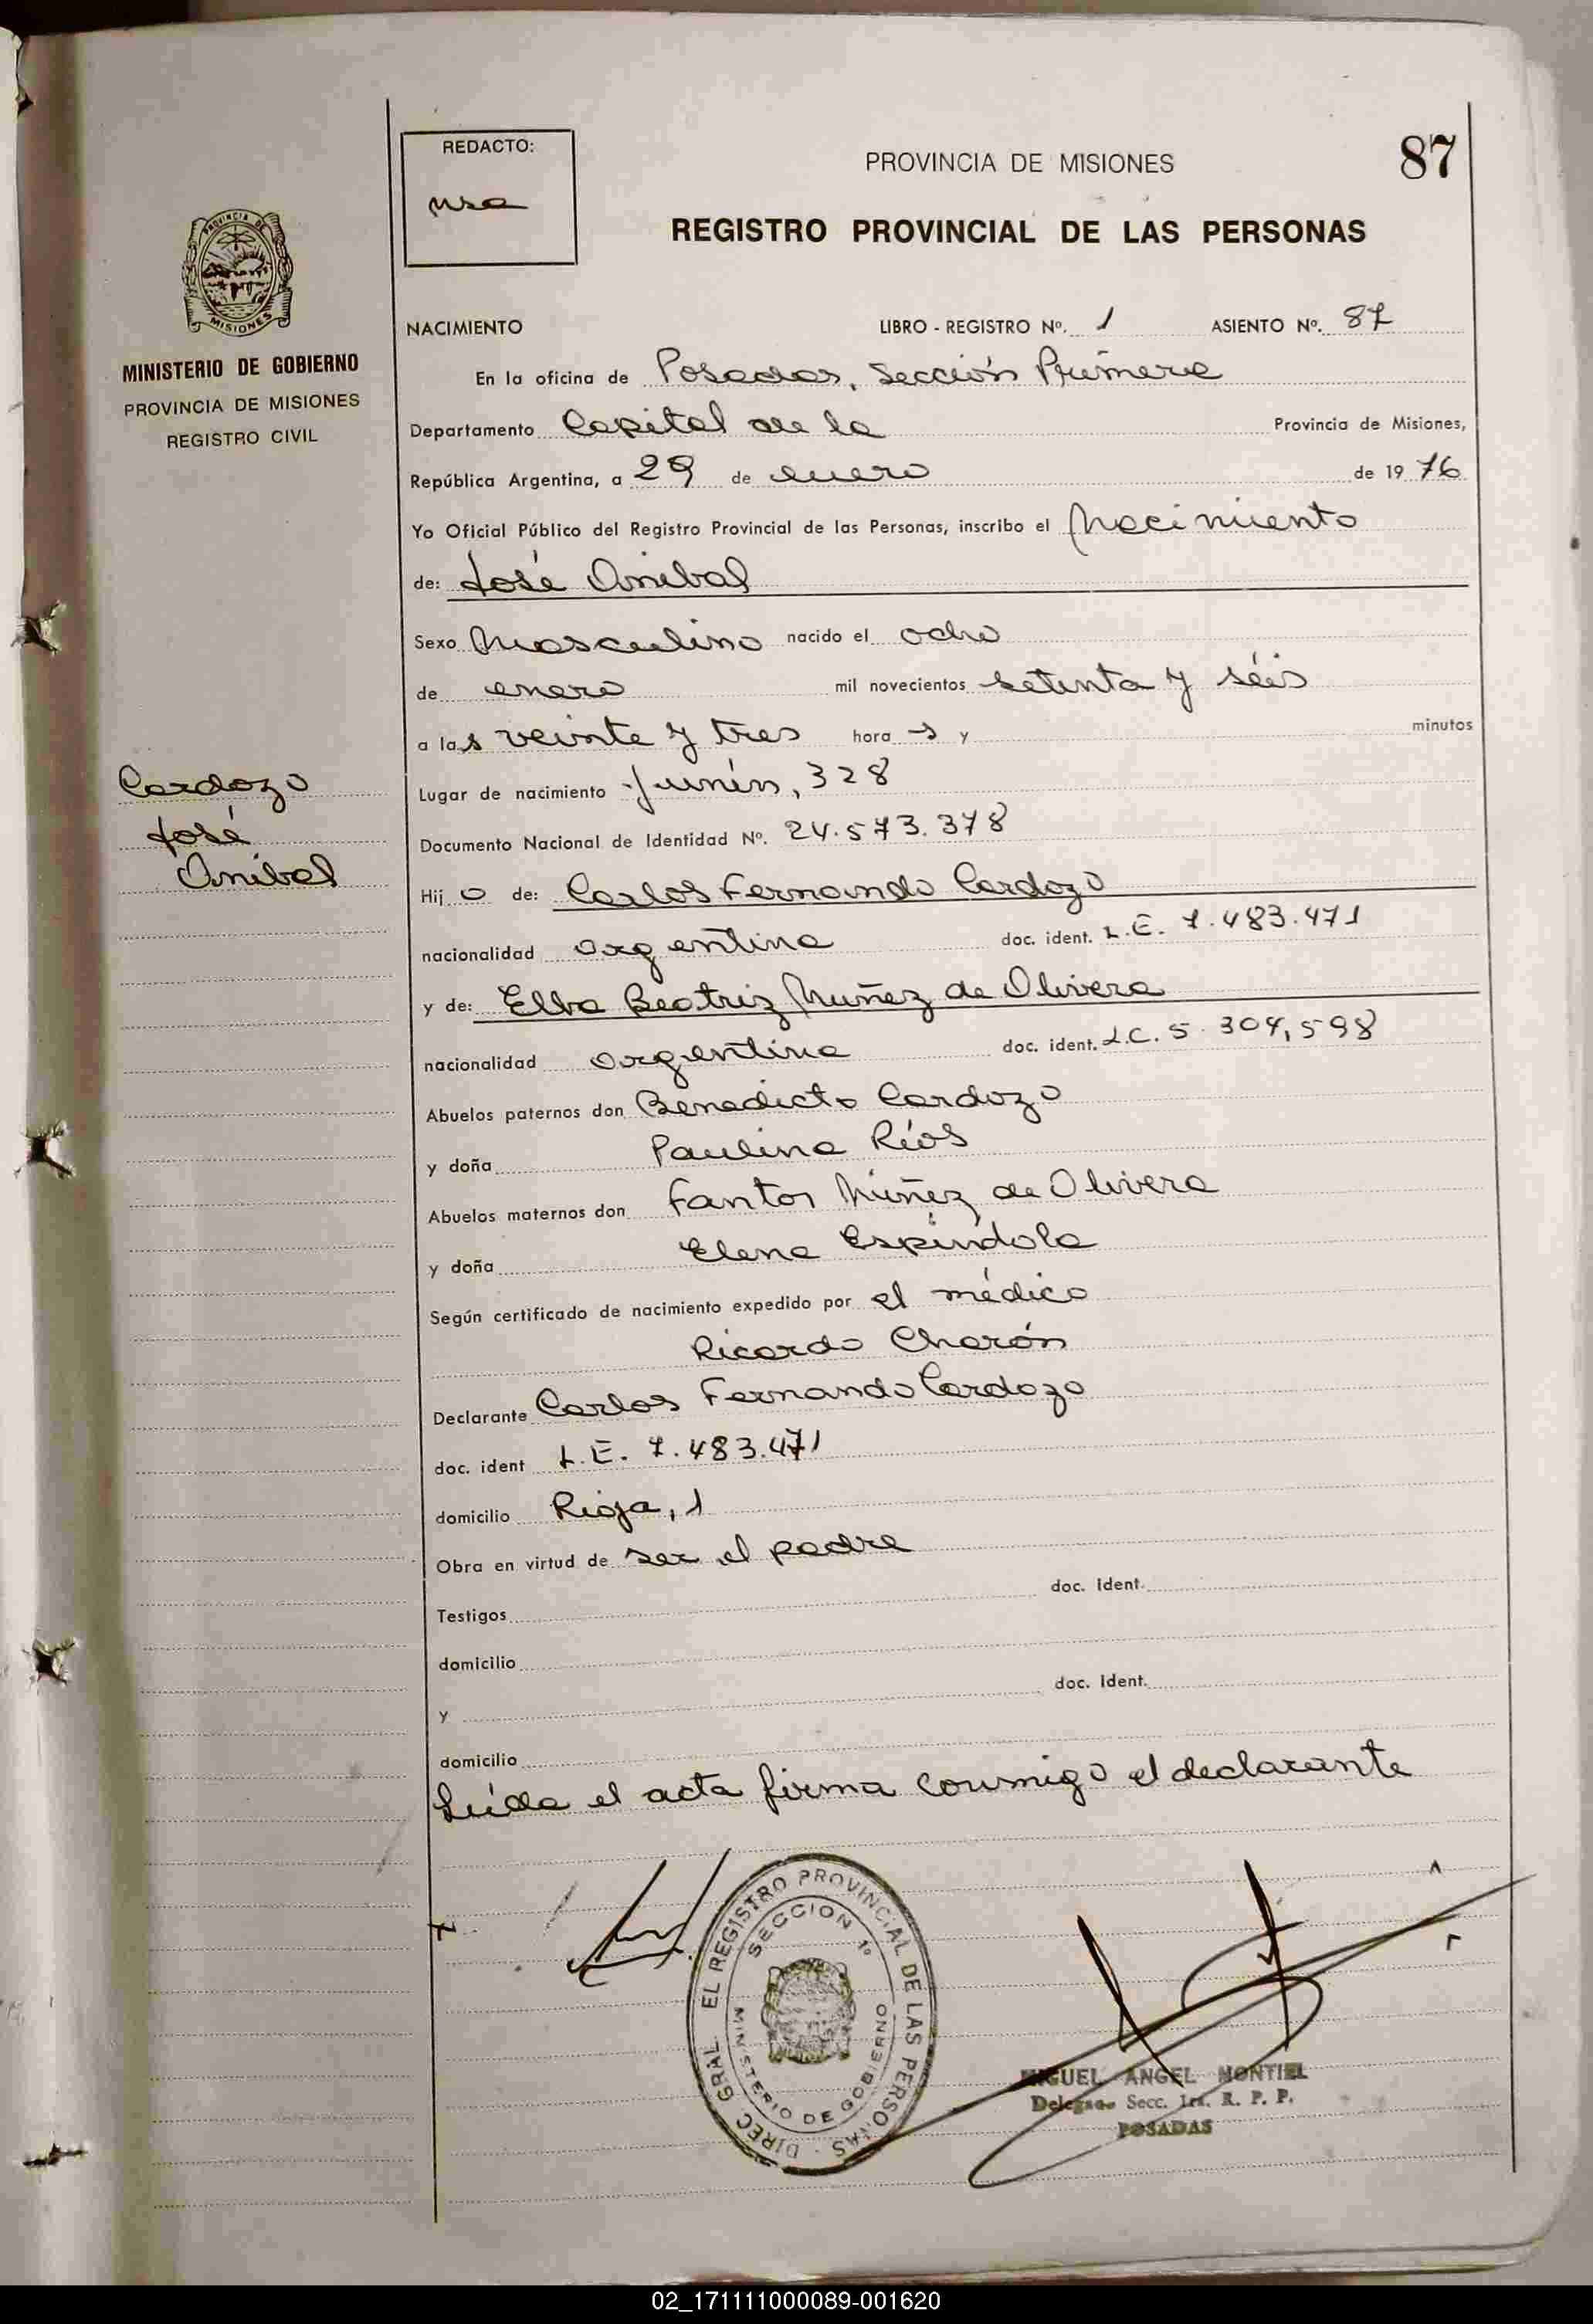 87
REDACTO:
PROVINCIA DE MISIONES
REGISTRO PROVINCIAL DE LAS PERSONAS
PROVINCIA DE
MISIONES
MINISTERIO DE GOBIERNO
PROVINCIA DE MISIONES
REGISTRO CIVIL
NACIMIENTO LIBRO - REGISTRO Nº. 1 ASIENTO Nº. 87
En la oficina de Posadas, Sección Primera
Departamento Capital de la Provincia de Misiones,
República Argentina, a 29 de enero de 1976
Yo Oficial Público del Registro Provincial de las Personas, inscribo el Nacimiento
de: José Anibal
Sexo Masculino nacido el ocho
de enero mil novecientos setenta y séis
a las veinte y tres horas y minutos
Cardozo
José
Anibal
Lugar de nacimiento Junín, 328
Documento Nacional de Identidad Nº. 24.573.378
Hijo de: Carlos Fernando Cardozo
nacionalidad argentina doc. ident. L.E. 7.483.471
y de: Elba Beatriz Nuñez de Olivera
nacionalidad argentina doc. ident. L.C. 5.304,598
Abuelos paternos don Benedicto Cardozo
y doña Paulina Ríos
Abuelos maternos don Núñez de Olivera
y doña Elena Espíndola
Según certificado de nacimiento expedido por el médico
Ricardo Charón
Declarante Carlos Fernando Cardozo
doc. ident L.E. 7.483.471
domicilio Rioja, 1
Obra en virtud de ser el padre
doc. Ident.
Testigos
domicilio
doc. Ident.
y
domicilio
Leída el acta firma conmigo el declarante
DIREC. GRAL. EL REGISTRO PROVINCIAL DE LAS PERSONAS
SECCION 1º
MINISTERIO DE GOBIERNO
MIGUEL ANGEL MONTIEL
Delegado Secc. 1ra. R. P. P.
POSADAS
02_171111000089-001620